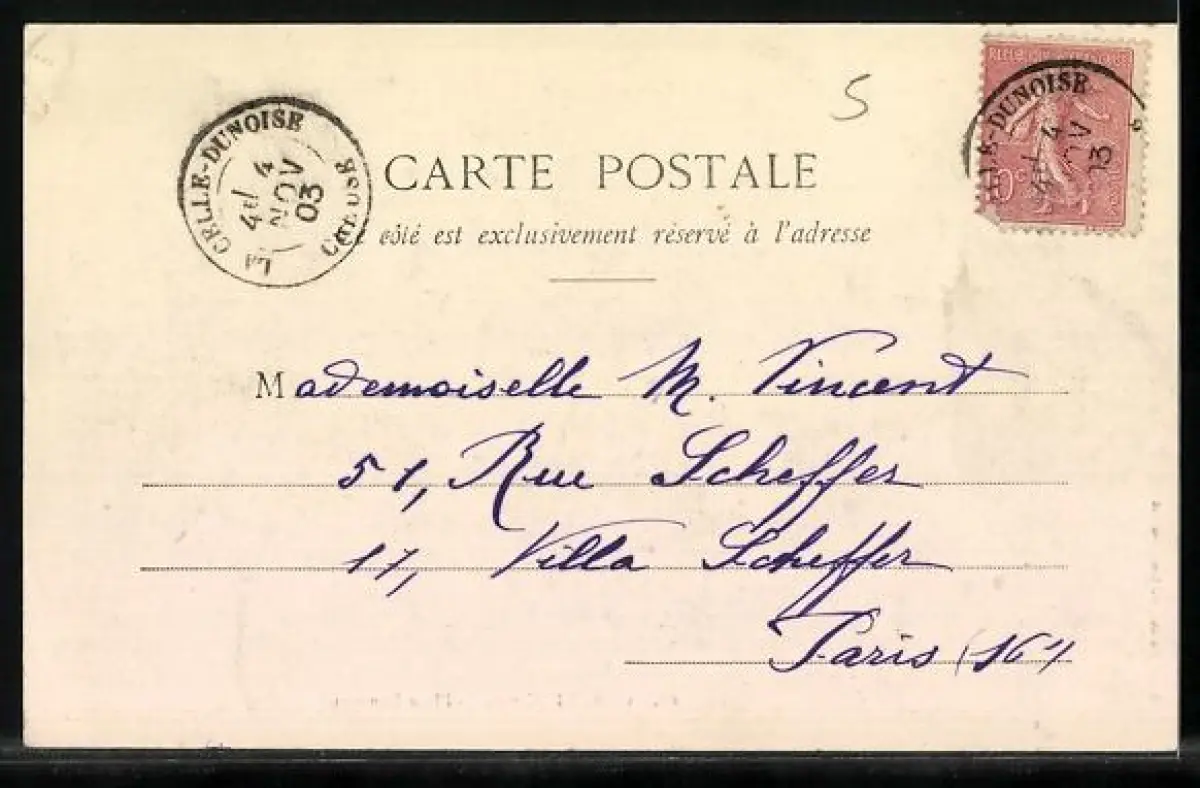 5
LA CELLE-DUNOISE
CREUSE
4
NOV
03
CELLE-DUNOISE
4
NOV
03
CARTE POSTALE
Ce côté est exclusivement réservé à l'adresse
Mademoiselle M. Vincent
51, Rue Scheffer
17, Villa Scheffer
Paris (16)